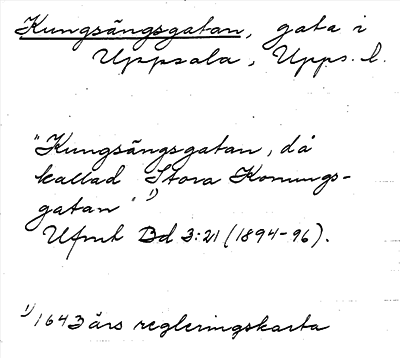 Kungsängsgatan, gata i
Uppsala, Upps. l.
"Kungsängsgatan, då
kallad 'Stora Konungs-
gatan' 1)
Ufmt Bd 3:21 (1894-96).
1) 1643 års regleringskarta